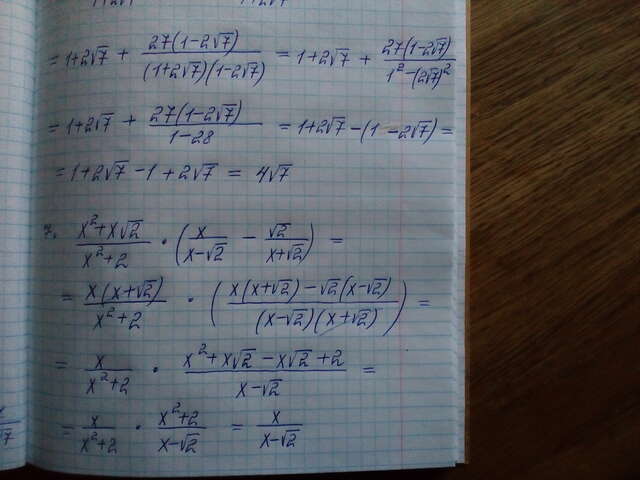 = 1+2√7 + 27(1-2√7)/((1+2√7)(1-2√7)) = 1+2√7 + 27(1-2√7)/(1²-(2√7)²)
= 1+2√7 + 27(1-2√7)/(1-28) = 1+2√7-(1-2√7) =
= 1+2√7-1+2√7 = 4√7
7. (x²+x√2)/(x²+2) · (x/(x-√2) - √2/(x+√2)) =
= x(x+√2)/(x²+2) · ((x(x+√2)-√2(x-√2))/((x-√2)(x+√2))) =
= x/(x²+2) · (x²+x√2-x√2+2)/(x-√2) =
= x/(x²+2) · (x²+2)/(x-√2) = x/(x-√2)